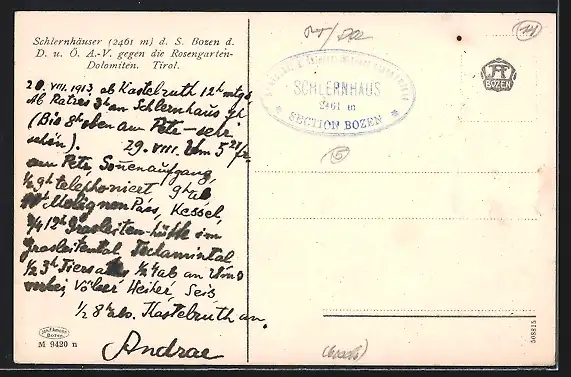 Schlernhäuser (2461 m) d. S. Bozen d.
D. u. Ö. A.-V. gegen die Rosengarten-
Dolomiten. Tirol.
20. VIII. 1913. ab Kastelruth 12h mtgs
Ab Ratzes 3h an Schlernhaus 7h
(Bis 8h oben am Petz – sehr
schön). 29. VIII. Um 5
am Petz, Sonnenaufgang,
½ 9h telephoniert 9h ab
Molignon Pass, Kessel,
¾ 12h Grasleiten-hütte im
Grasleitental, Tschamintal
½ 3h Tiers ab ½ 4 ab an
vorbei, Völser Weiher, Seis,
½ 8h abs. Kastelruth an.
Andrae
SCHLERNHAUS
2461 m
* SECTION BOZEN *
BOZEN
(14)
(5)
Bozen
M 9420 n
508825